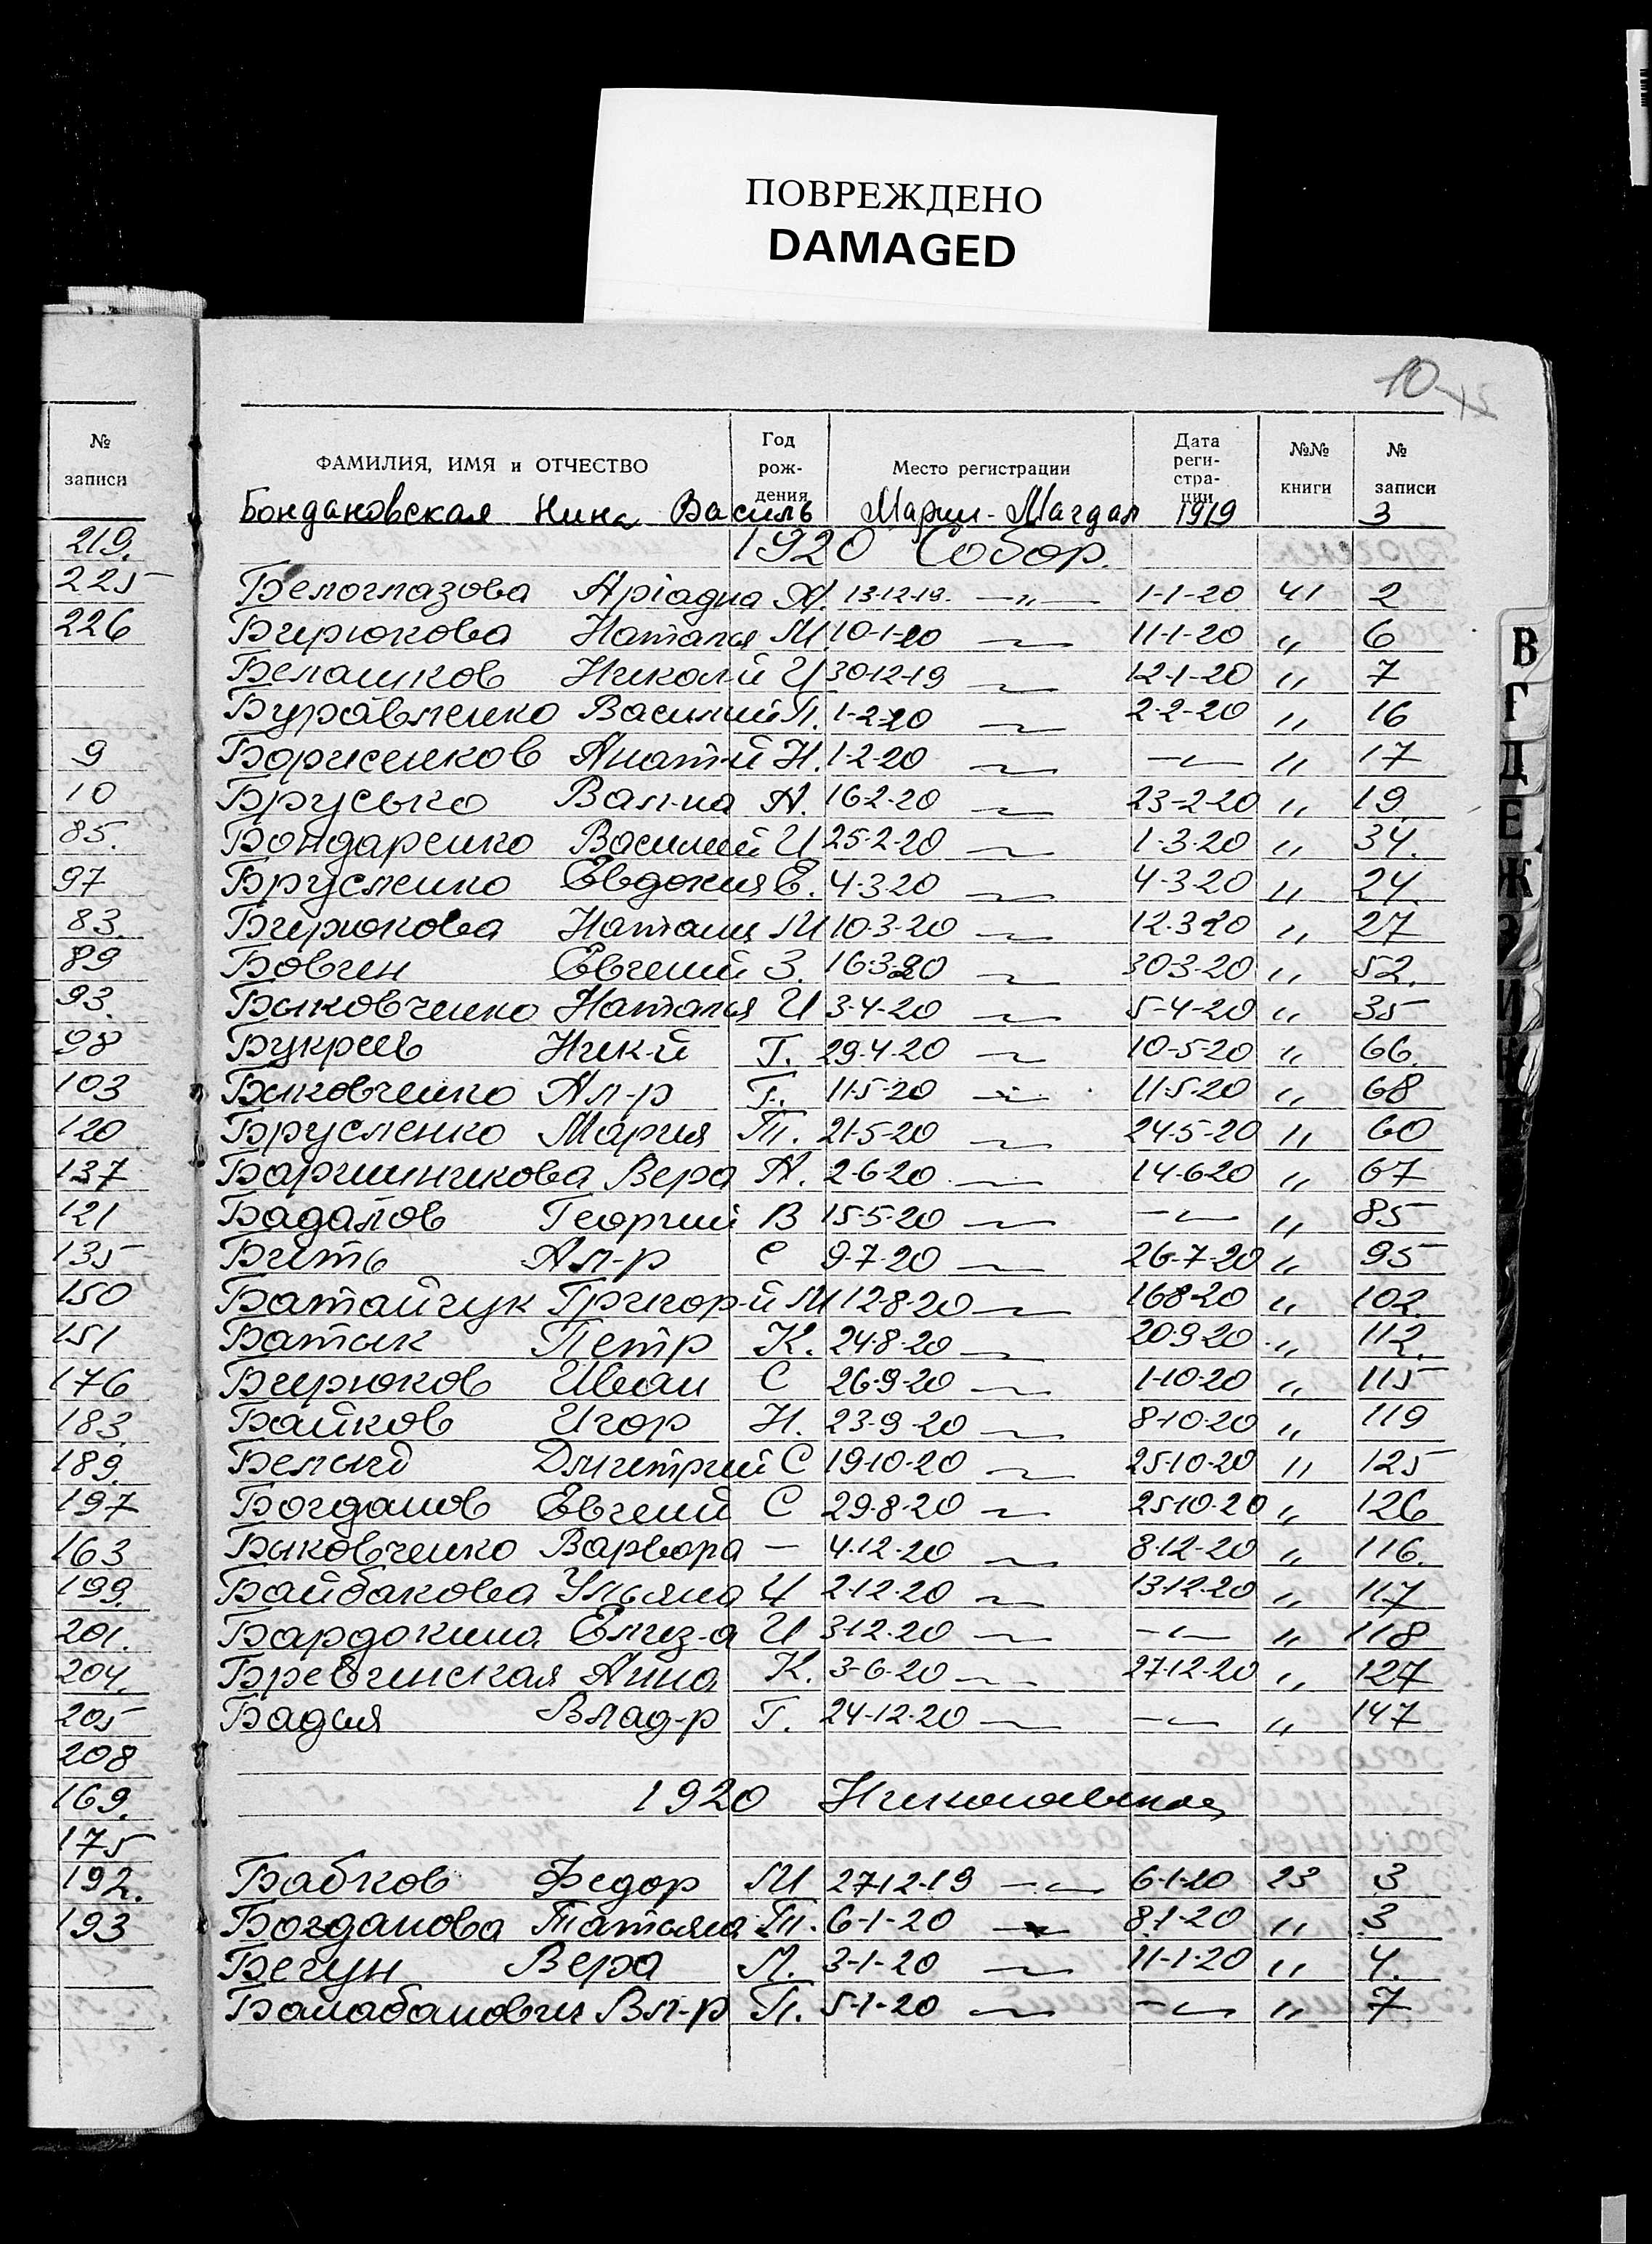 ПОВРЕЖДЕНО
DAMAGED
10
№ записи
219.
225
226
9
10
85.
97
83.
89
93.
98
103
120
137
121
135
150
151
176
183.
189.
197
163
199.
201.
204.
205
208
169.
175
192.
193
ФАМИЛИЯ, ИМЯ и ОТЧЕСТВО Год рож-дения Место регистрации Дата реги-стра-ции №№ книги № записи
Бондановская Нина Василь Марии-Магдал 1919 3
1920 Собор.
Белоглазова Аріадна А. 13-12-19. —〃— 1-1-20 41 2
Бирюкова Наталья М 10-1-20 — 11-1-20 〃 6
Белашков Николй И 30-12-19 — 12-1-20 〃 7
Буравленко Василий П. 1-2-20 — 2-2-20 〃 16
Борисенков Анат-й Н. 1-2-20 — — 〃 17
Брусько Вал-на А. 16-2-20 — 23-2-20 〃 19
Бондаренко Василий И 25-2-20 — 1-3-20 〃 34.
Брусленко Евдокия Е. 4-3-20 — 4-3-20 〃 24.
Бирюкова Наталия М 10-3-20 — 12.3 20 〃 27
Бовген Евгений З. 16-3-20 — 30-3-20 〃 52.
Быковченко Наталья И 3-4-20 — 5-4-20 〃 35
Букреев Ник-й Г. 29-4-20 — 10-5-20 〃 66.
Быковченко Ал-р Г. 11-5-20 — 11-5-20 〃 68
Брусленко Мария Т. 21-5-20 — 24-5-20 〃 60
Баришникова Вера А. 2-6-20 — 14-6-20 〃 67
Бадалов Георгий В 15-5-20 — — 〃 85
Бить Ал-р С 9-7-20 — 26-7-20 〃 95
Батайчук Григор-й М 12-8-20 — 16-8-20 〃 102
Батык Петр К. 24-8-20 — 20-9-20 〃 112.
Бирюков Иван С 26-9-20 — 1-10-20 〃 115
Байков Игор Н. 23-9-20 — 8-10-20 〃 119
Белый Дмитрий С 19-10-20 — 25-10-20 〃 125
Богданов Евгений С 29-8-20 — 25-10-20 〃 126
Быковченко Варвора — 4-12-20 — 8-12-20 〃 116.
Байбакова Ульяна И 2-12-20 — 13-12-20 〃 117
Бардокина Елиз-а И 3-12-20 — — 〃 118
Бревчинская Анна К. 3-6-20 — 27-12-20 〃 127
Бадия Влад-р Г. 24-12-20 — — 〃 147
1920 Николаевская
Бабков Федор М 27-12-19 — 6-1-20 23 3
Богданова Татьяна Т. 6-1-20 — 8-1-20 〃 3
Бегун Вера П. 3-1-20 — 11-1-20 〃 4.
Балабанович Вл-р П. 5-1-20 — — 〃 7
В
Г
Д
Е
Ж
И